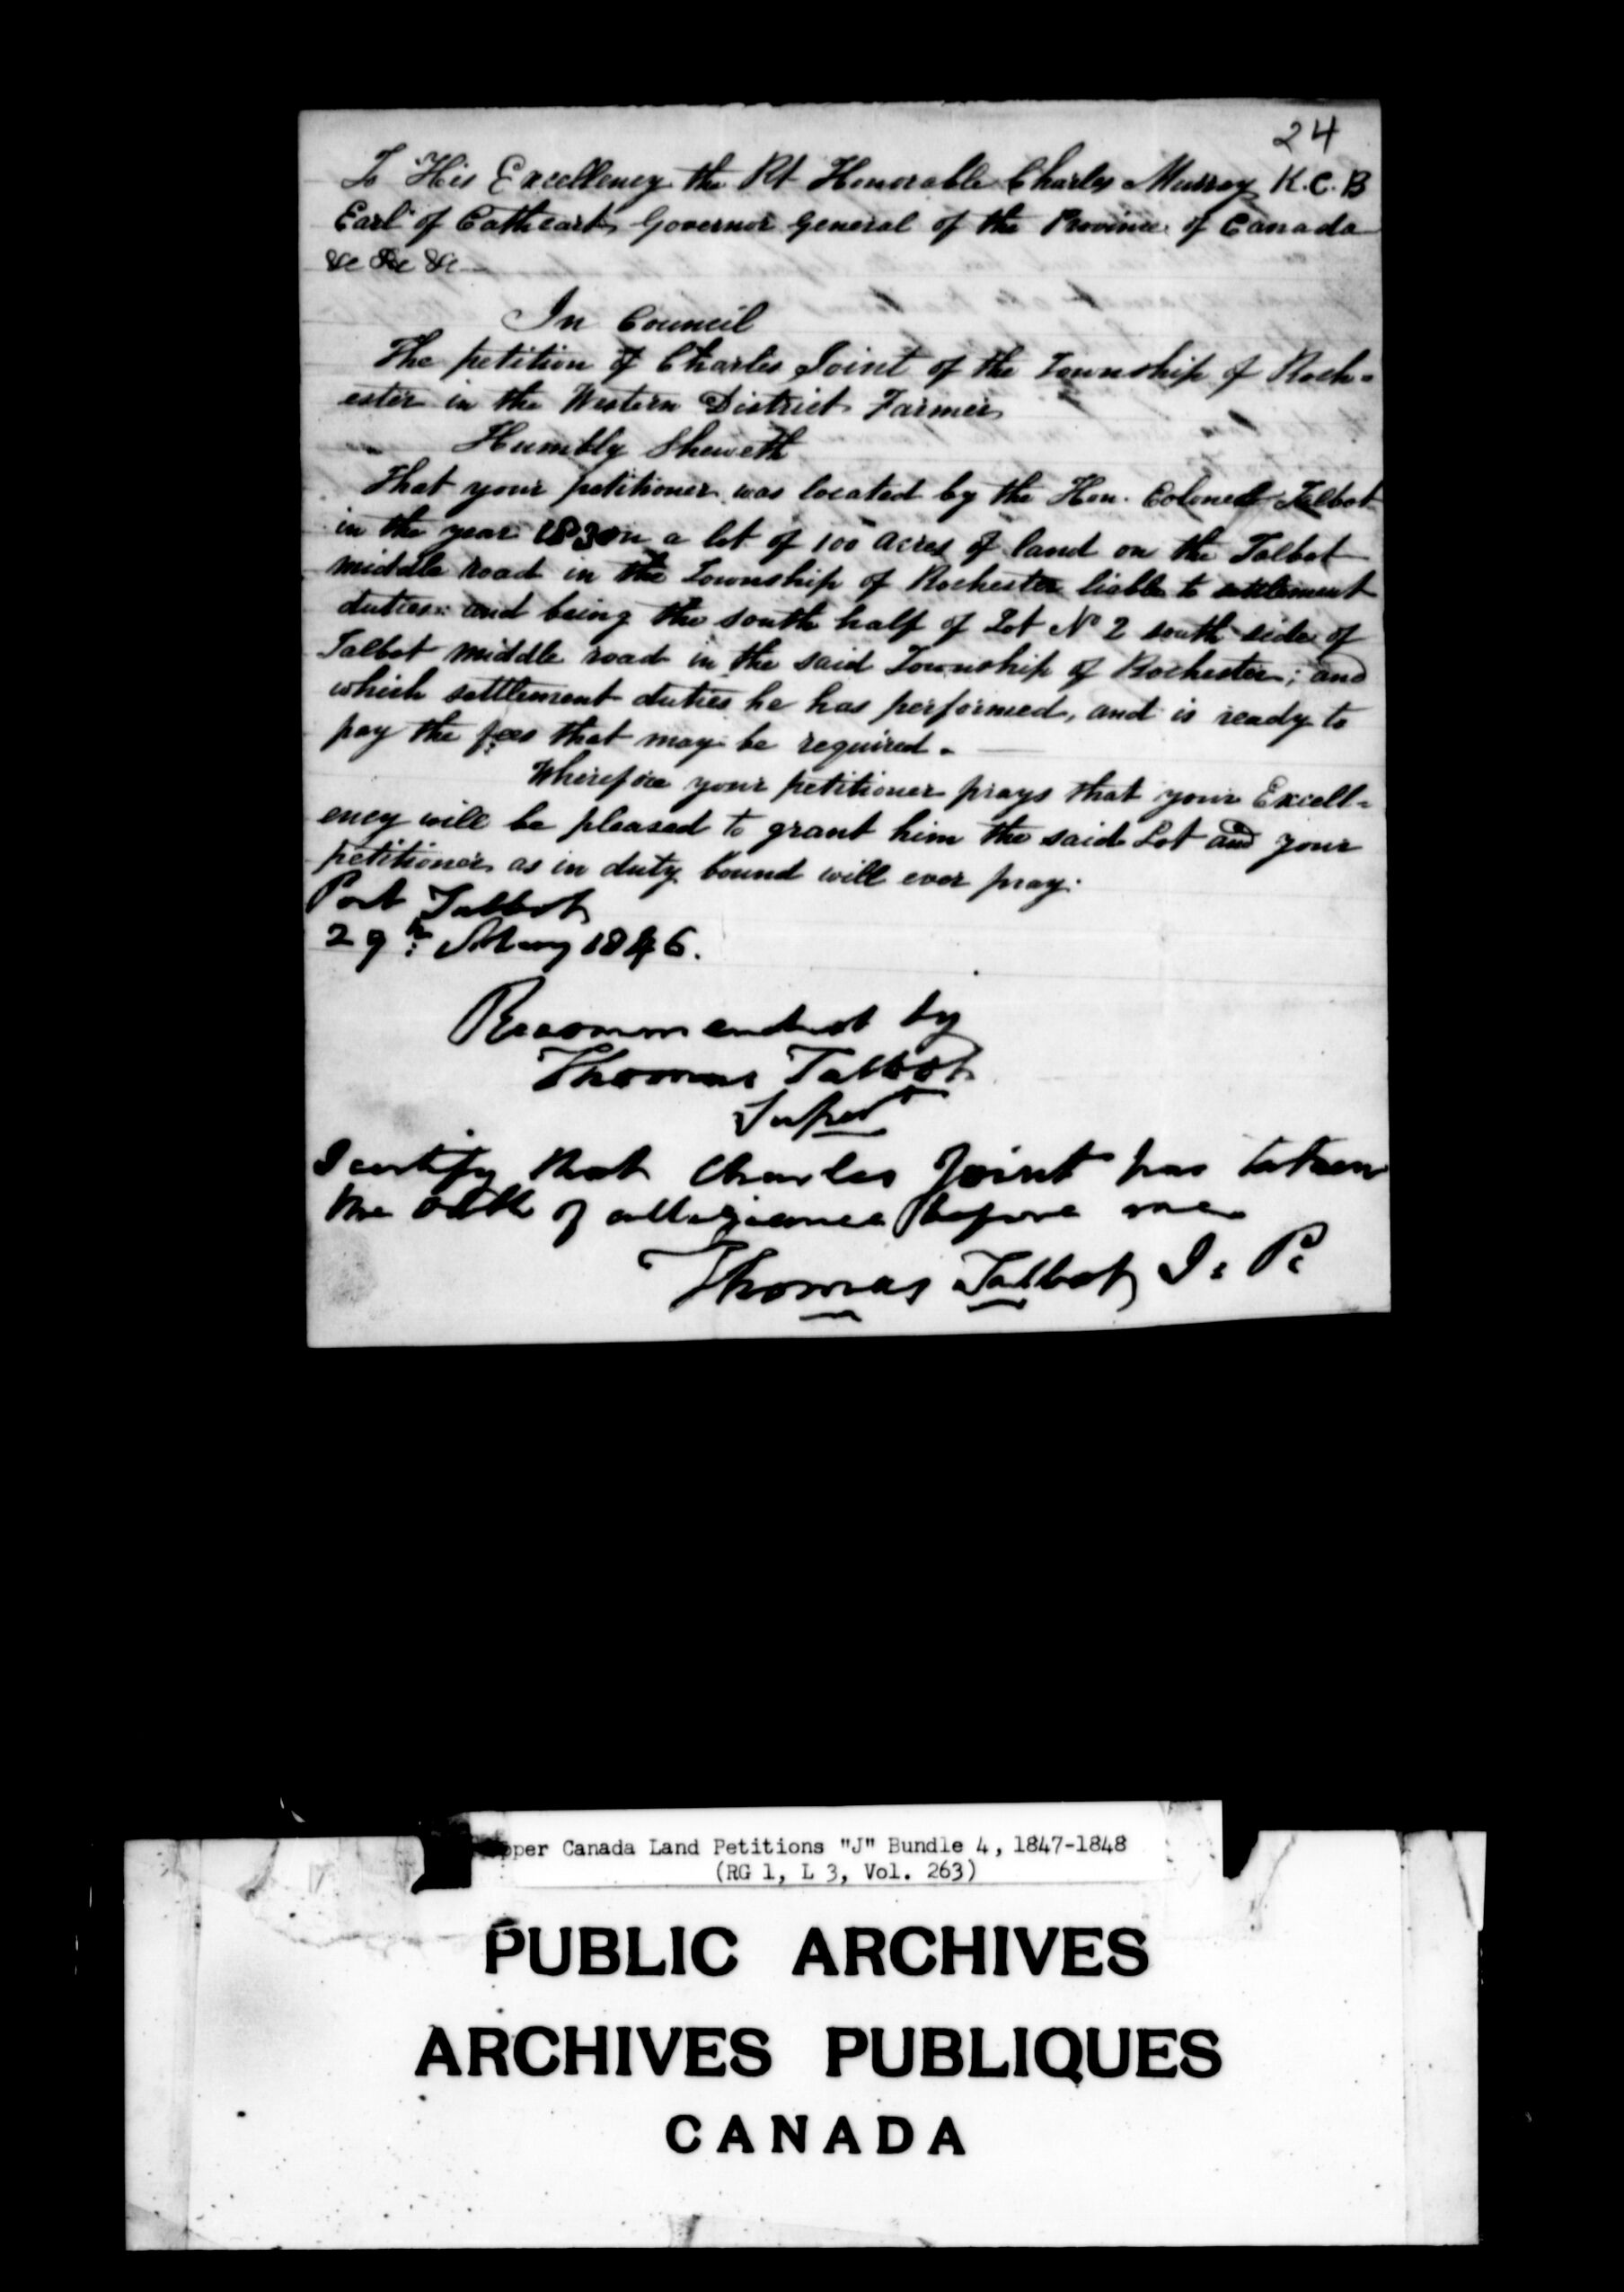 24
To His Excellency the Rt Honorable Charles Murray K.C.B
Earl of Cathcart, Governor General of the Province of Canada
&c &c &c
In Council
The petition of Charles Joint of the Township of Roch=
ester in the Western District Farmer
Humbly Sheweth
That your petitioner was located by the Hon. Colonel Talbot
in the year 1830 on a lot of 100 acres of land on the Talbot
middle road in the Township of Rochester liable to settlement
duties: and being the south half of Lot No 2 south side of
Talbot middle road in the said Township of Rochester; and
which settlement duties he has performed, and is ready to
pay the fees that may be required.
Wherefore your petitioner prays that your Excell=
ency will be pleased to grant him the said Lot and your
petitioner as in duty bound will ever pray.
Port Talbot
29th May 1846.
Recommended by
Thomas Talbot
Supert
I certify that Charles Joint has taken
the oath of allegiance before me
Thomas Talbot J: P:
pper Canada Land Petitions "J" Bundle 4, 1847-1848
(RG 1, L 3, Vol. 263)
PUBLIC ARCHIVES
ARCHIVES PUBLIQUES
CANADA